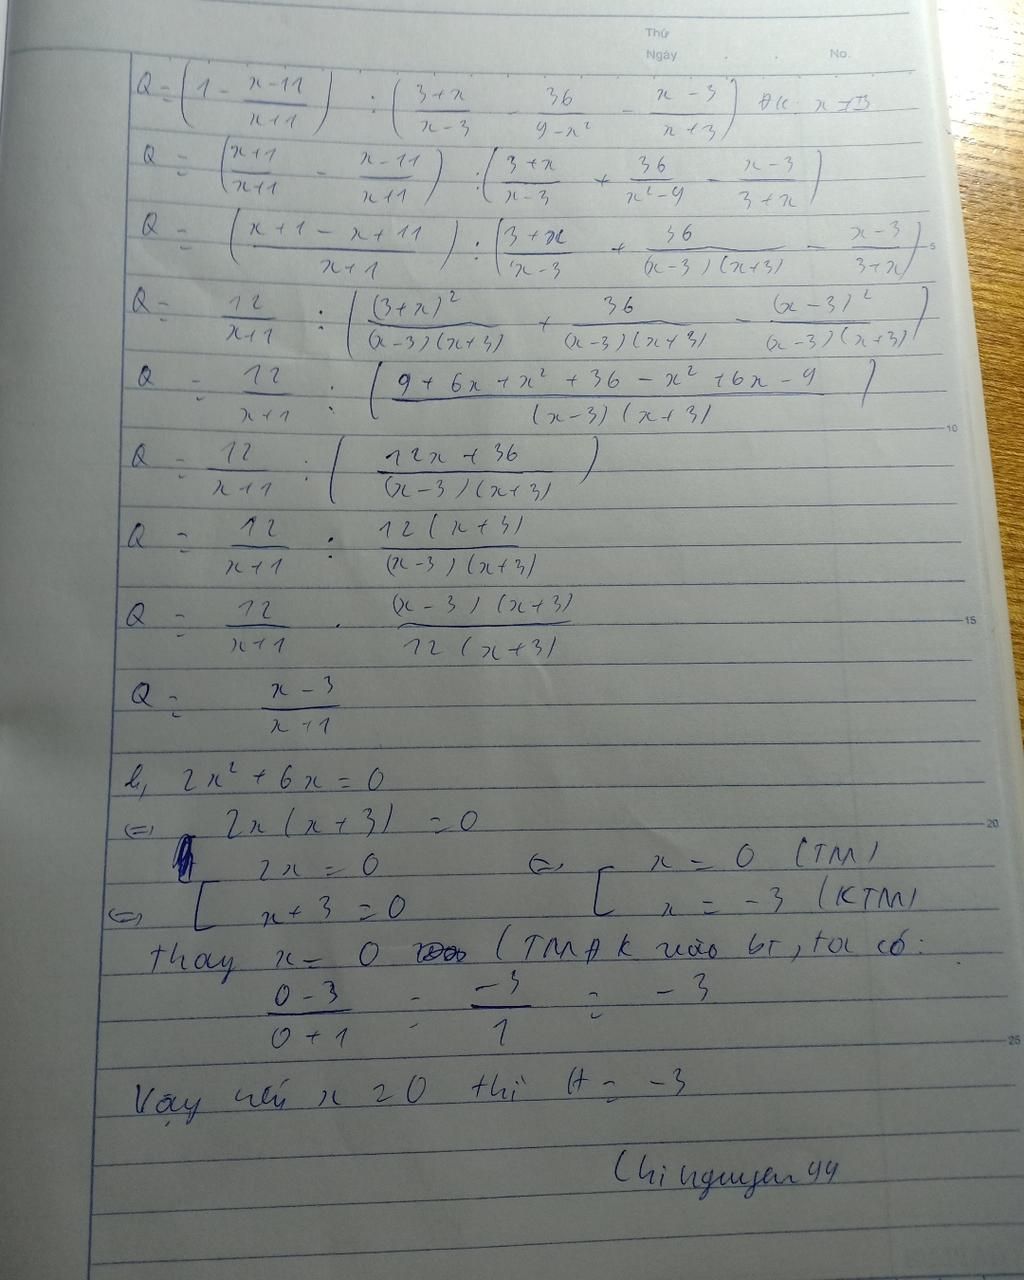 Thứ
Ngày . . No.
Q = (1 - (x-11)/(x+1)) : ((3+x)/(x-3) - 36/(9-x²) - (x-3)/(x+3)) ĐK x ≠ ±3
Q = ((x+1)/(x+1) - (x-11)/(x+1)) : ((3+x)/(x-3) + 36/(x²-9) - (x-3)/(3+x))
Q = ((x+1-x+11)/(x+1)) : ((3+x)/(x-3) + 36/((x-3)(x+3)) - (x-3)/(3+x))
5
Q = 12/(x+1) : ((3+x)²/((x-3)(x+3)) + 36/((x-3)(x+3)) - (x-3)²/((x-3)(x+3)))
Q = 12/(x+1) : ((9+6x+x²+36-x²+6x-9)/((x-3)(x+3)))
10
Q = 12/(x+1) : ((12x+36)/((x-3)(x+3)))
Q = 12/(x+1) : 12(x+3)/((x-3)(x+3))
Q = 12/(x+1) . (x-3)(x+3)/(12(x+3))
15
Q = (x-3)/(x+1)
b, 2x² + 6x = 0
⇔ 2x(x+3) = 0
20
[ 2x = 0 ⇔ [ x = 0 (TM)
⇔ x+3 = 0 x = -3 (KTM)
thay x = 0 (TMĐK vào bt, ta có:
(0-3)/(0+1) = -3/1 = -3
25
Vậy nếu x = 0 thì A = -3
Chi nguyen 44